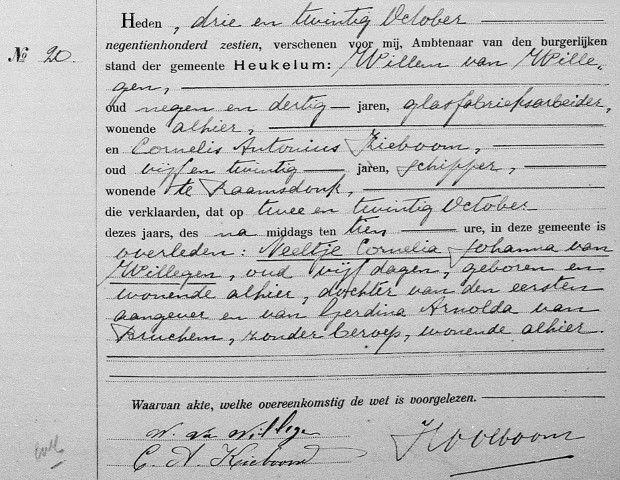 Heden, drie en twintig October
negentienhonderd zestien, verschenen voor mij, Ambtenaar van den burgerlijken
No 20.
stand der gemeente Heukelum: Willem van Wille-
gen,
oud negen en dertig jaren, glasfabrieksarbeider,
wonende alhier,
en Cornelis Antonius Kieboom,
oud vijf en twintig jaren, schipper,
wonende te Raamsdonk,
die verklaarden, dat op twee en twintig October
dezes jaars, des na middags ten tien ure, in deze gemeente is
overleden: Neeltje Cornelia Johanna van
Willegen, oud vijf dagen, geboren en
wonende alhier, dochter van den eersten
aangever en van Gerdina Arnolda van
Bruchem, zonder beroep, wonende alhier.
Waarvan akte, welke overeenkomstig de wet is voorgelezen.
W. van Willegen
C. A. Kieboom